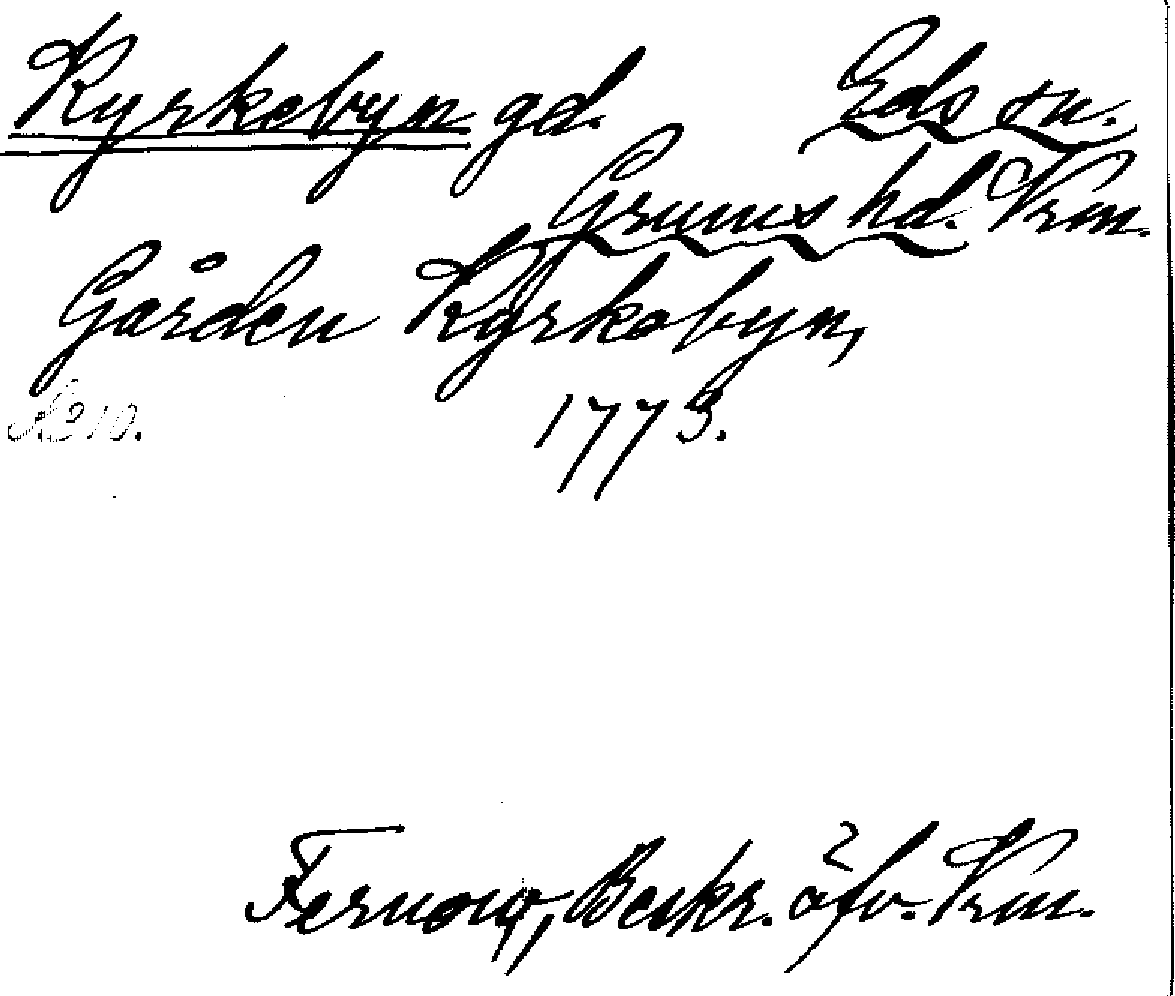 Kyrkebyn gd. Eds sn.
Grums hd. Vrm.
Gården Kyrkobyn,
1773.
Fernow, Beskr. öfv. Vrm.